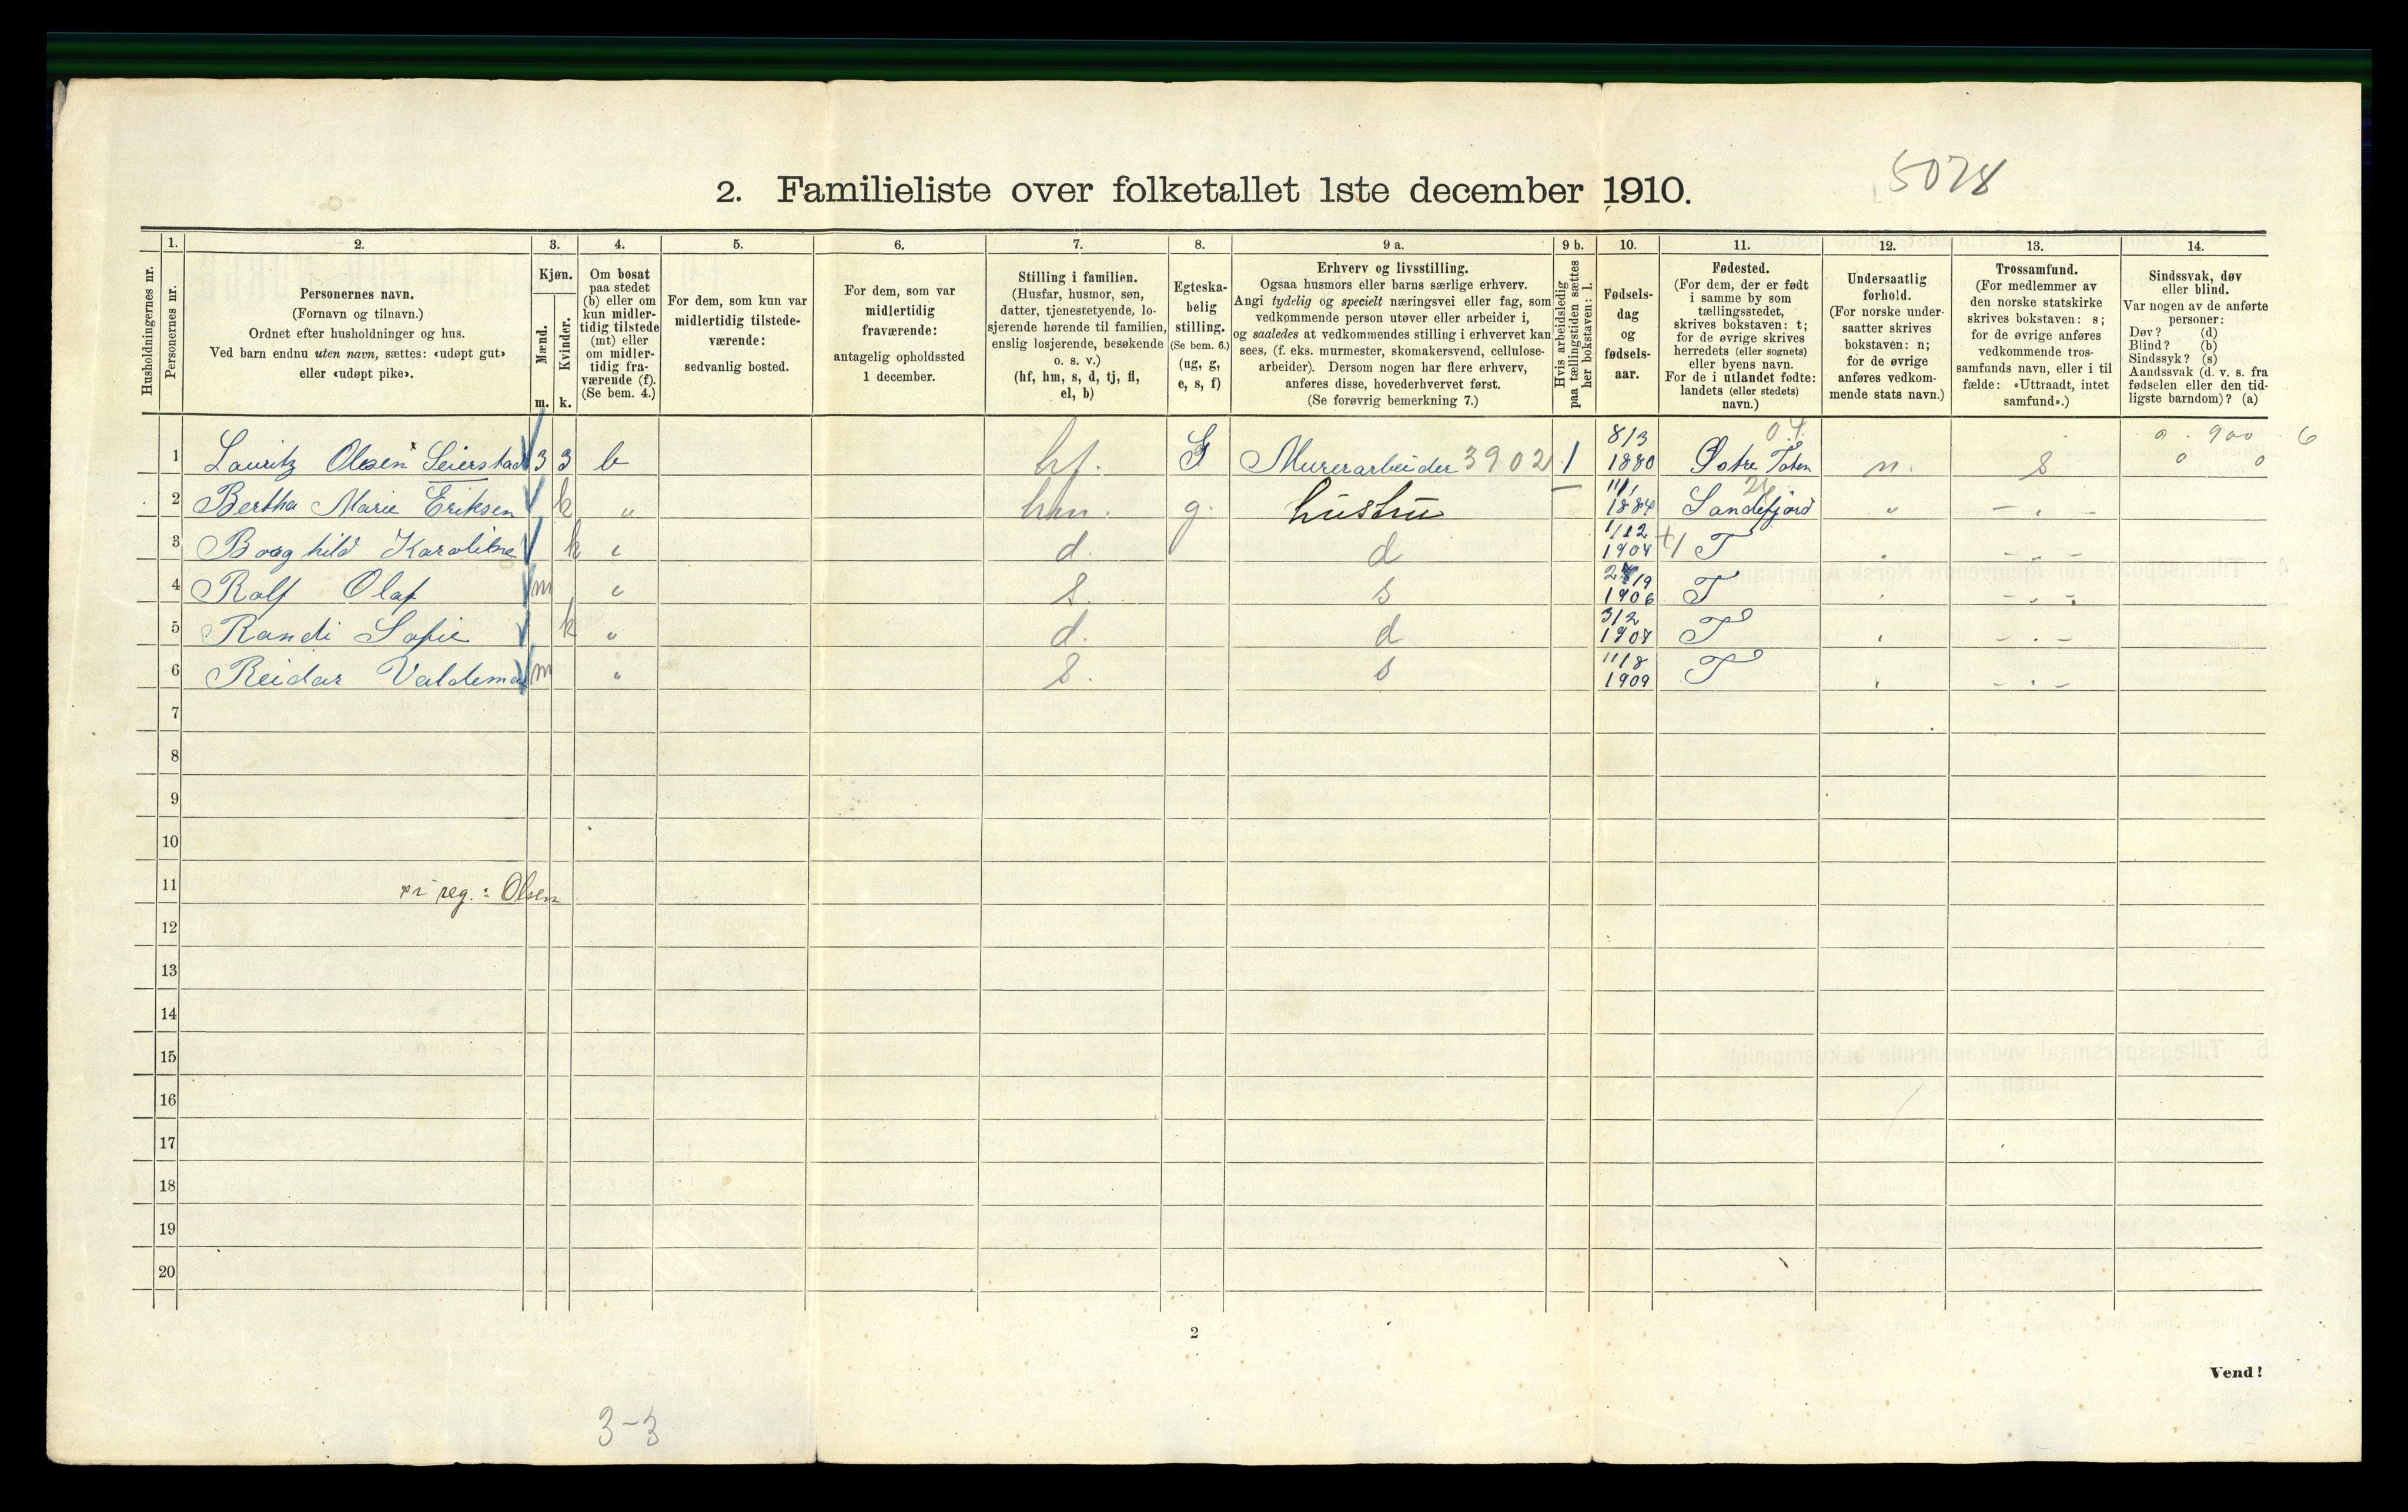 5078
2. Familieliste over folketallet 1ste december 1910.
Husholdningernes nr.
1. Personernes nr.
2. Personernes navn.
(Fornavn og tilnavn.)
Ordnet efter husholdninger og hus.
Ved barn endnu uten navn, sættes: «udøpt gut»
eller «udøpt pike».
3. Kjøn.
Mænd. m.
Kvinder. k.
4. Om bosat
paa stedet
(b) eller om
kun midler-
tidig tilstede
(mt) eller
om midler-
tidig fra-
værende (f).
(Se bem. 4.)
5. For dem, som kun var
midlertidig tilstede-
værende:
sedvanlig bosted.
6. For dem, som var
midlertidig
fraværende:
antagelig opholdssted
1 december.
7. Stilling i familien.
(Husfar, husmor, søn,
datter, tjenestetyende, lo-
sjerende hørende til familien,
enslig losjerende, besøkende
o. s. v.)
(hf, hm, s, d, tj, fl,
el, b)
8. Egteska-
belig
stilling.
(Se bem. 6.)
(ug, g,
e, s, f)
9 a. Erhverv og livsstilling.
Ogsaa husmors eller barns særlige erhverv.
Angi tydelig og specielt næringsvei eller fag, som
vedkommende person utøver eller arbeider i,
og saaledes at vedkommendes stilling i erhvervet kan
sees, (f. eks. murmester, skomakersvend, cellulose-
arbeider). Dersom nogen har flere erhverv,
anføres disse, hovederhvervet først.
(Se forøvrig bemerkning 7.)
9 b. Hvis arbeidsledig
paa tællingstiden sættes
her bokstaven: l.
10. Fødsels-
dag
og
fødsels-
aar.
11. Fødested.
(For dem, der er født
i samme by som
tællingsstedet,
skrives bokstaven: t;
for de øvrige skrives
herredets (eller sognets)
eller byens navn.
For de i utlandet fødte:
landets (eller stedets)
navn.)
12. Undersaatlig
forhold.
(For norske under-
saatter skrives
bokstaven: n;
for de øvrige
anføres vedkom-
mende stats navn.)
13. Trossamfund.
(For medlemmer av
den norske statskirke
skrives bokstaven: s;
for de øvrige anføres
vedkommende tros-
samfunds navn, eller i til
fælde: «Uttraadt, intet
samfund».)
14. Sindssvak, døv
eller blind.
Var nogen av de anførte
personer:
Døv? (d)
Blind? (b)
Sindssyk? (s)
Aandssvak (d. v. s. fra
fødselen eller den tid-
ligste barndom)? (a)
04 0 900 6
1 Lauritz Olsen x Seierstad 3 3 b hf. G Murerarbeider 3902 1 8/3 1880 Østre Toten n. s 0 0
2 Bertha Marie Eriksen k " hm. g. hustru — 11/1 1884 Sandefjord " — " —
3 Borghild Karoline k " d. d 1/12 1904 T " — " —
4 Rolf Olaf m " s. s 1906 T " — " —
5 Randi Sofie k " d. d 3/2 1908 T " — " —
6 Reidar Valdemar m " s. s 11/8 1909 T " — " —
7
8
9
10
11 x i reg.: Olsen
12
13
14
15
16
17
18
19
20
2
Vend!
3-3